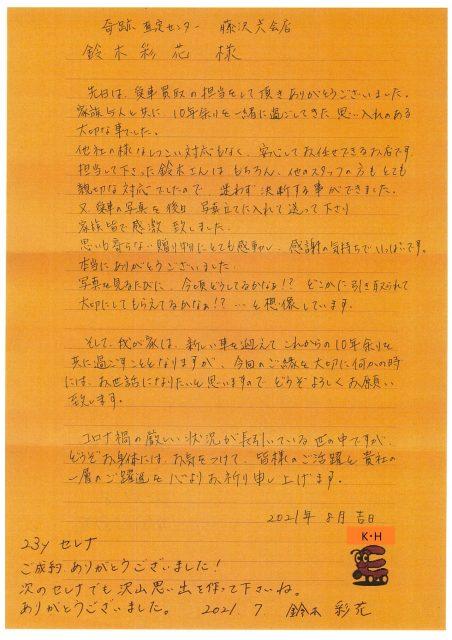 奇跡 査定センター 藤沢六会店
鈴木彩花 様
先日は、愛車買取の担当をして頂きありがとうございました。
家族4人と共に、10年余りを一緒に過ごしてきた思い入れのある
大切な車でした。
他社の様なしつこい対応もなく、安心してお任せできるお店です
担当して下さった鈴木さんはもちろん、他のスタッフの方もとても
親切な対応でしたので、迷わず決断する事ができました。
又、愛車の写真を後日、写真立てに入れて送って下さり
家族皆で感激致しました。
思いも寄らない贈り物にとても感動し、感謝の気持ちでいっぱいです。
本当にありがとうございました。
写真を見るたびに、今頃どうしてるかなぁ!? どこかに引き取られて
大切にしてもらえてるかなぁ!? …と想像しています。
そして、我が家は、新しい車を迎えてこれからの10年余りを
共に過ごすこととなりますが、今回のご縁を大切に何かの時
には、お世話になりたいと思いますのでどうぞよろしくお願い
致します。
コロナ禍の厳しい状況が長引いている世の中ですが、
どうぞお身体には、お気をつけて、皆様のご活躍と貴社の
一層のご躍進を心よりお祈り申し上げます。
2021年 8月 吉日
K・H
23y セレナ
ご成約ありがとうございました!
次のセレナでも沢山思い出を作って下さいね。
ありがとうございました。 2021.7 鈴木 彩花